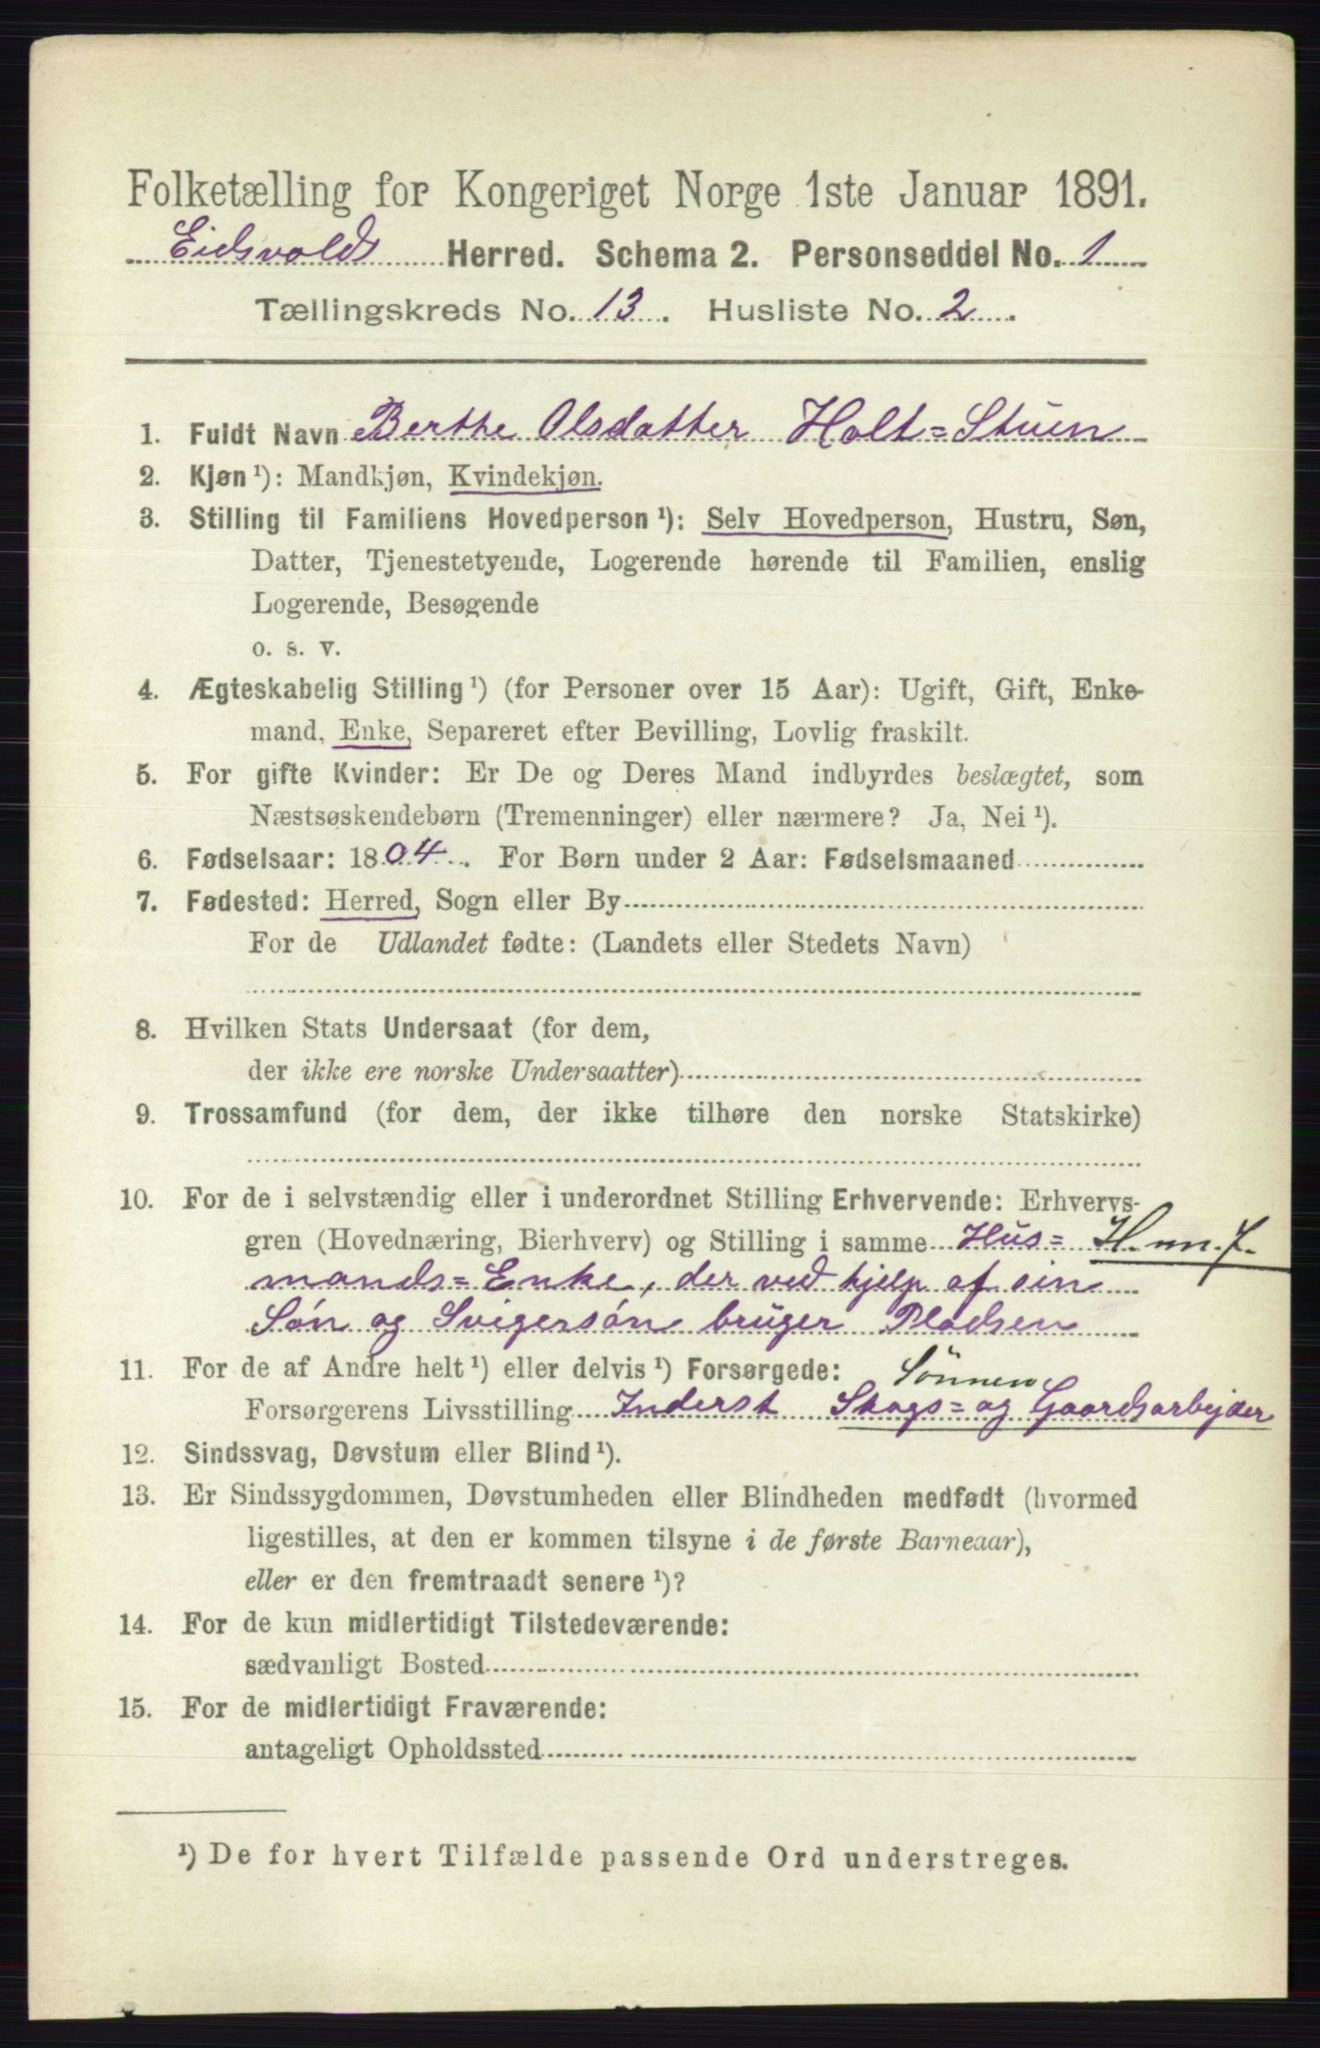 Folketælling for Kongeriget Norge 1ste Januar 1891.
Eidsvolds Herred. Schema 2. Personseddel No. 1
Tællingskreds No. 13. Husliste No. 2.
1. Fuldt Navn Berthe Olsdatter Holt=Stuen
2. Kjøn ¹): Mandkjøn, Kvindekjøn.
3. Stilling til Familiens Hovedperson ¹): Selv Hovedperson, Hustru, Søn,
Datter, Tjenestetyende, Logerende hørende til Familien, enslig
Logerende, Besøgende
o. s. v.
4. Ægteskabelig Stilling ¹) (for Personer over 15 Aar): Ugift, Gift, Enke-
mand, Enke, Separeret efter Bevilling, Lovlig fraskilt.
5. For gifte Kvinder: Er De og Deres Mand indbyrdes beslægtet, som
Næstsøskendebørn (Tremenninger) eller nærmere? Ja, Nei ¹).
6. Fødselsaar: 1804. For Børn under 2 Aar: Fødselsmaaned
7. Fødested: Herred, Sogn eller By
For de Udlandet fødte: (Landets eller Stedets Navn)
8. Hvilken Stats Undersaat (for dem,
der ikke ere norske Undersaatter)
9. Trossamfund (for dem, der ikke tilhøre den norske Statskirke)
10. For de i selvstændig eller i underordnet Stilling Erhvervende: Erhvervs-
gren (Hovednæring, Bierhverv) og Stilling i samme Hus=
mands=Enke, der ved hjelp af sin
Søn og Svigersøn bruger Pladsen
11. For de af Andre helt ¹) eller delvis ¹) Forsørgede: Sønnen
Forsørgerens Livsstilling Inderst Skogs= og Gaardsarbejder
12. Sindssvag, Døvstum eller Blind ¹).
13. Er Sindssygdommen, Døvstumheden eller Blindheden medfødt (hvormed
ligestilles, at den er kommen tilsyne i de første Barneaar),
eller er den fremtraadt senere ¹)?
14. For de kun midlertidigt Tilstedeværende:
sædvanligt Bosted
15. For de midlertidigt Fraværende:
antageligt Opholdssted
¹) De for hvert Tilfælde passende Ord understreges.